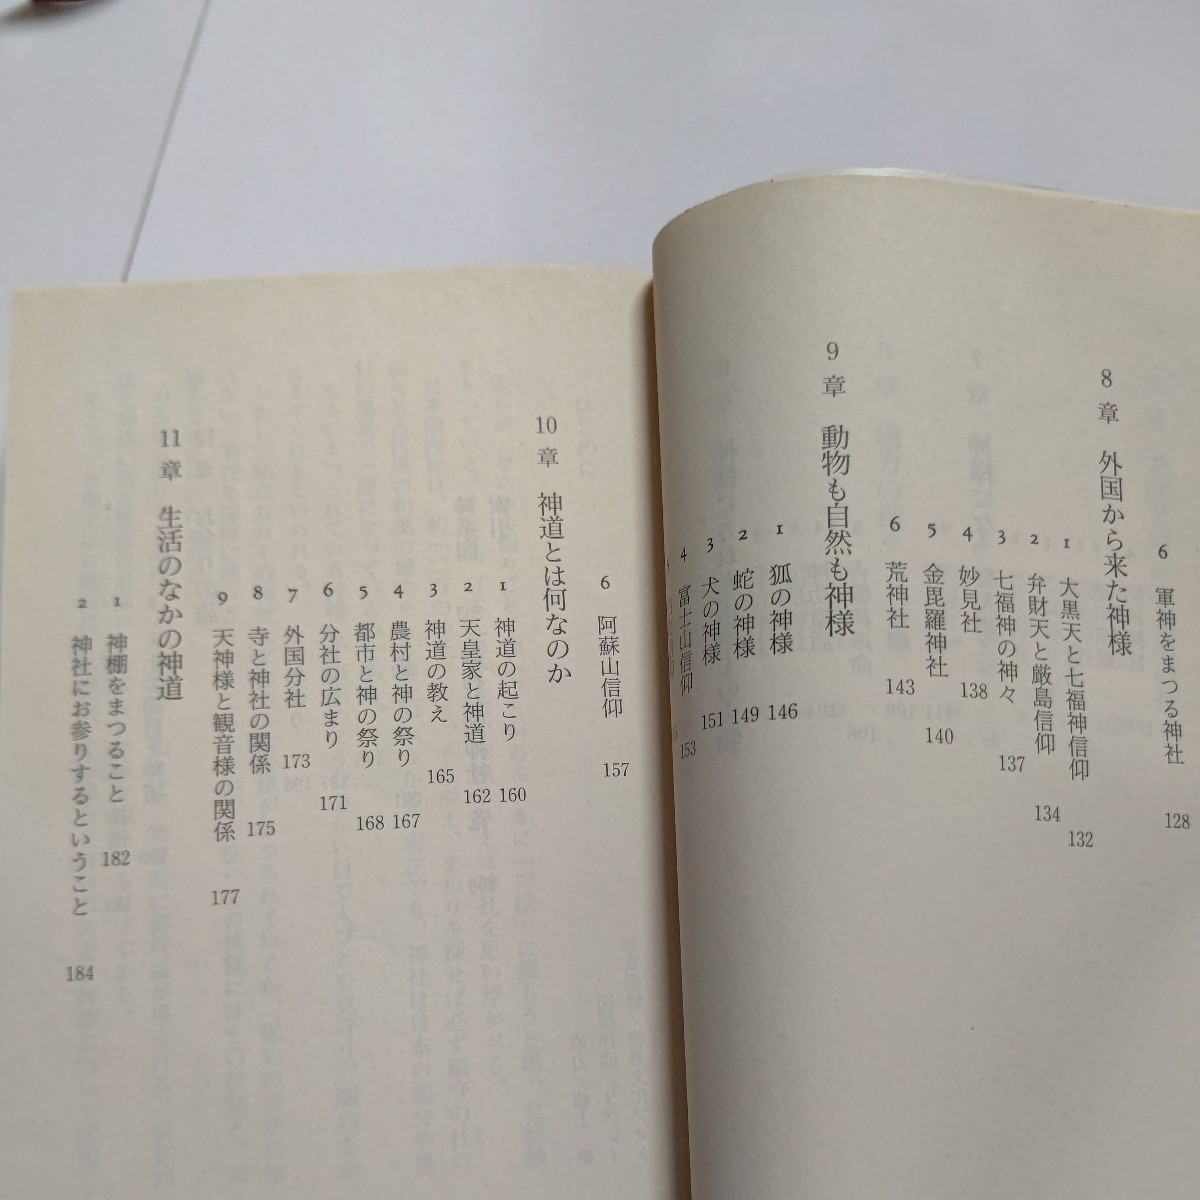 6 軍神をまつる神社 128
8章 外国から来た神様
1 大黒天と七福神信仰 132
2 弁財天と厳島信仰 134
3 七福神の神々 137
4 妙見社 138
5 金毘羅神社 140
6 荒神社 143
9章 動物も自然も神様
1 狐の神様 146
2 蛇の神様 149
3 犬の神様 151
4 富士山信仰 153
6 阿蘇山信仰 157
10章 神道とは何なのか
1 神道の起こり 160
2 天皇家と神道 162
3 神道の教え 165
4 農村と神の祭り 167
5 都市と神の祭り 168
6 分社の広まり 171
7 外国分社 173
8 寺と神社の関係 175
9 天神様と観音様の関係 177
11章 生活のなかの神道
1 神棚をまつること 182
2 神社にお参りするということ 184